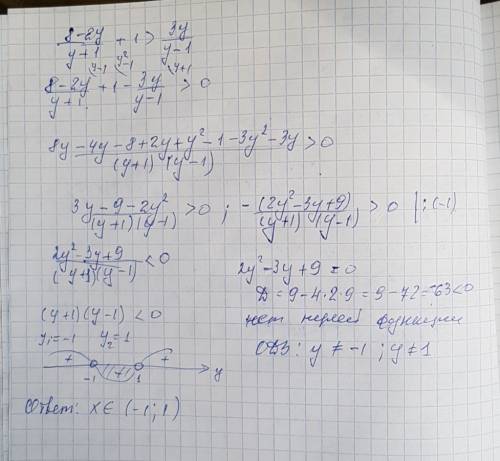 (8-2y)/(y+1) + 1 > 3y/(y-1)
y-1 y²-1 y+1
(8-2y)/(y+1) + 1 - 3y/(y-1) > 0
(8y-4y-8+2y+y²-1-3y²-3y)/((y+1)(y-1)) > 0
(3y-9-2y²)/((y+1)(y-1)) > 0 ; -(2y²-3y+9)/((y+1)(y-1)) > 0 | :(-1)
(2y²-3y+9)/((y+1)(y-1)) < 0
2y²-3y+9=0
D = 9-4·2·9 = 9-72 = -63<0
нет нулей функции
ОДЗ: y ≠ -1 ; y ≠ 1
(y+1)(y-1) < 0
y₁=-1 y₂=1
+ - +
-1 1 y
Ответ: X ∈ (-1; 1)